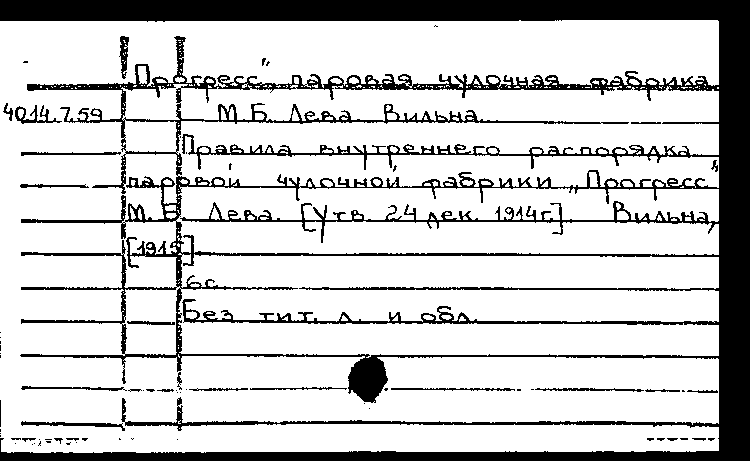 "Прогресс", паровая чулочная фабрика
4014.7.59 М.Б. Лева. Вильна.
Правила внутреннего распорядка
паровой чулочной фабрики „Прогресс"
М. Б. Лева. [Утв. 24 дек. 1914г.]. Вильна,
[1915]
6с.
Без тит. л. и обл.